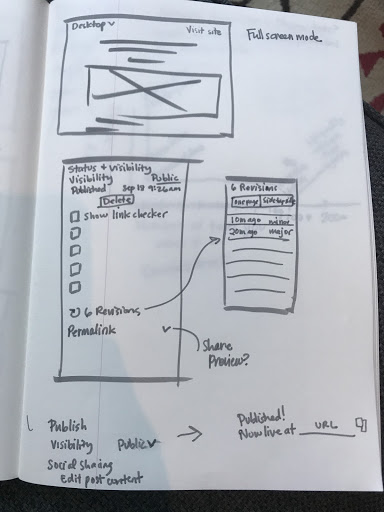 Desktop
Visit site
Full screen mode
Status + Visibility
Visibility Public
Published Sep 18 9:26am
Delete
Show link checker
6 Revisions
Permalink
6 Revisions
one page Side by side
10m ago minor
20m ago major
Share
Preview?
Publish
Visibility Public
Social sharing
Edit post content
Published!
Now live at URL